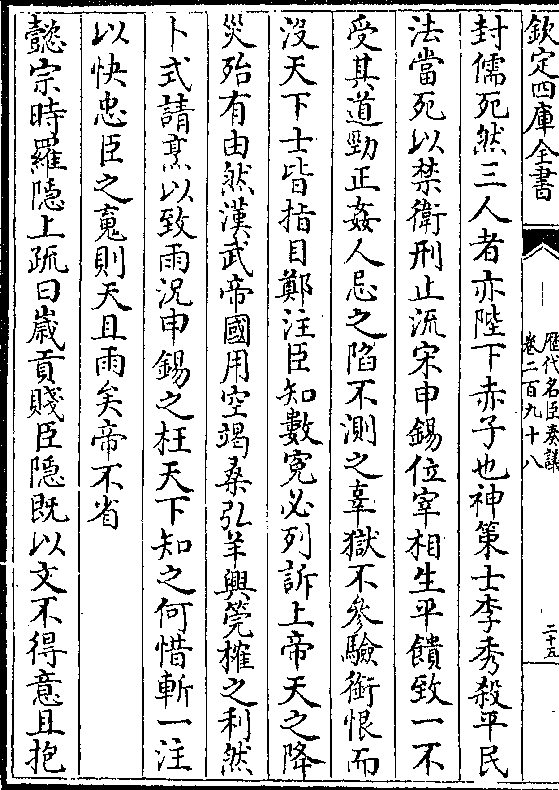 欽定四庫全書
歷代名臣奏議
卷二百九十八
二十五
封儒死然三人者亦陛下赤子也神策士李秀殺平民
法當死以禁衛刑止流宋申錫位宰相生平饋致一不
受其道勁正姦人忌之陷不測之辜獄不參驗銜恨而
沒天下士皆指目鄭注臣知數寃必列訴上帝天之降
災殆有由然漢武帝國用空竭桑弘羊興筦榷之利然
卜式請烹以致雨況申錫之枉天下知之何惜斬一注
以快忠臣之䰟則天且雨矣帝不省
懿宗時羅隱上疏曰歲貢賤臣隱既以文不得意且抱